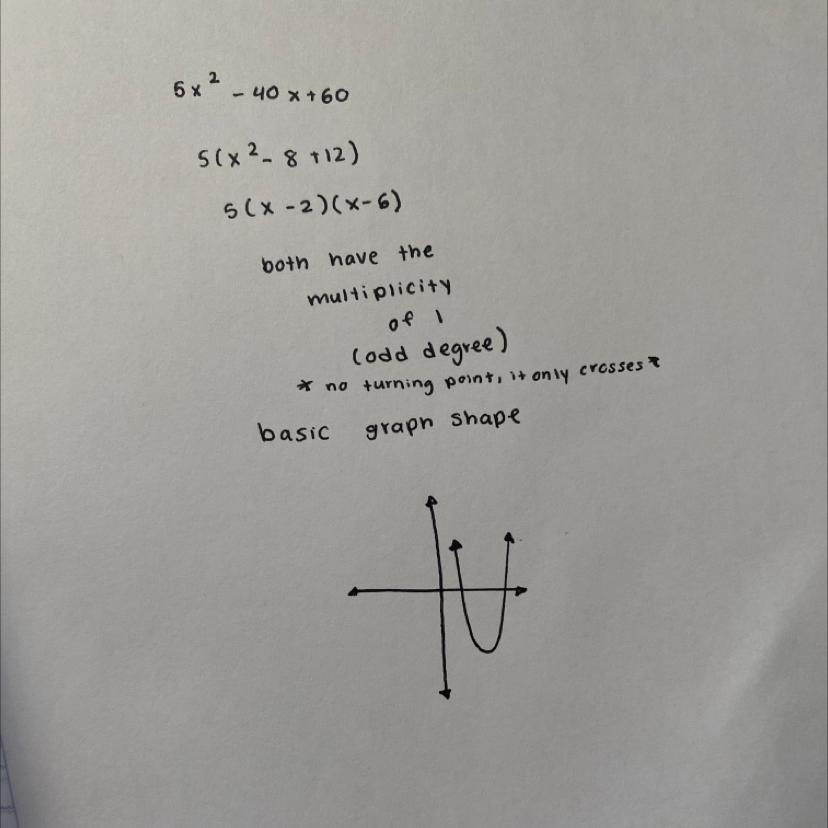 5x² - 40x + 60
5(x² - 8 + 12)
5(x - 2)(x - 6)
both have the
multiplicity
of 1
(odd degree)
* no turning point, it only crosses *
basic graph shape